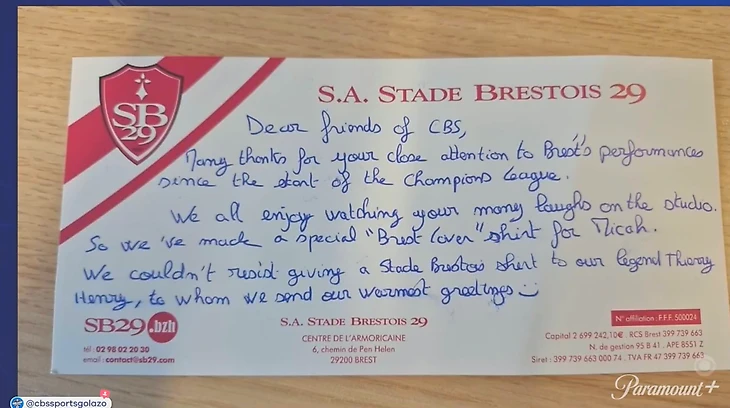 SB
29
S.A. STADE BRESTOIS 29
Dear friends of CBS,
Many thanks for your close attention to Brest's performances
since the start of the Champions League.
We all enjoy watching your many laughs on the studio.
So we've made a special "Brest lover" shirt for Micah.
We couldn't resist giving a Stade Brestois shirt to our legend Thierry
Henry, to whom we send our warmest greetings ☺
SB29.bzh
tél : 02 98 02 20 30
email : contact@sb29.com
S.A. STADE BRESTOIS 29
CENTRE DE L'ARMORICAINE
6, chemin de Pen Helen
29200 BREST
N° affiliation : F.F.F. 500024
Capital 2 699 242,10€ . RCS Brest 399 739 663
N. de gestion 95 B 41 . APE 8551 Z
Siret : 399 739 663 000 74 . TVA FR 47 399 739 663
Paramount+
@cbssportsgolazo